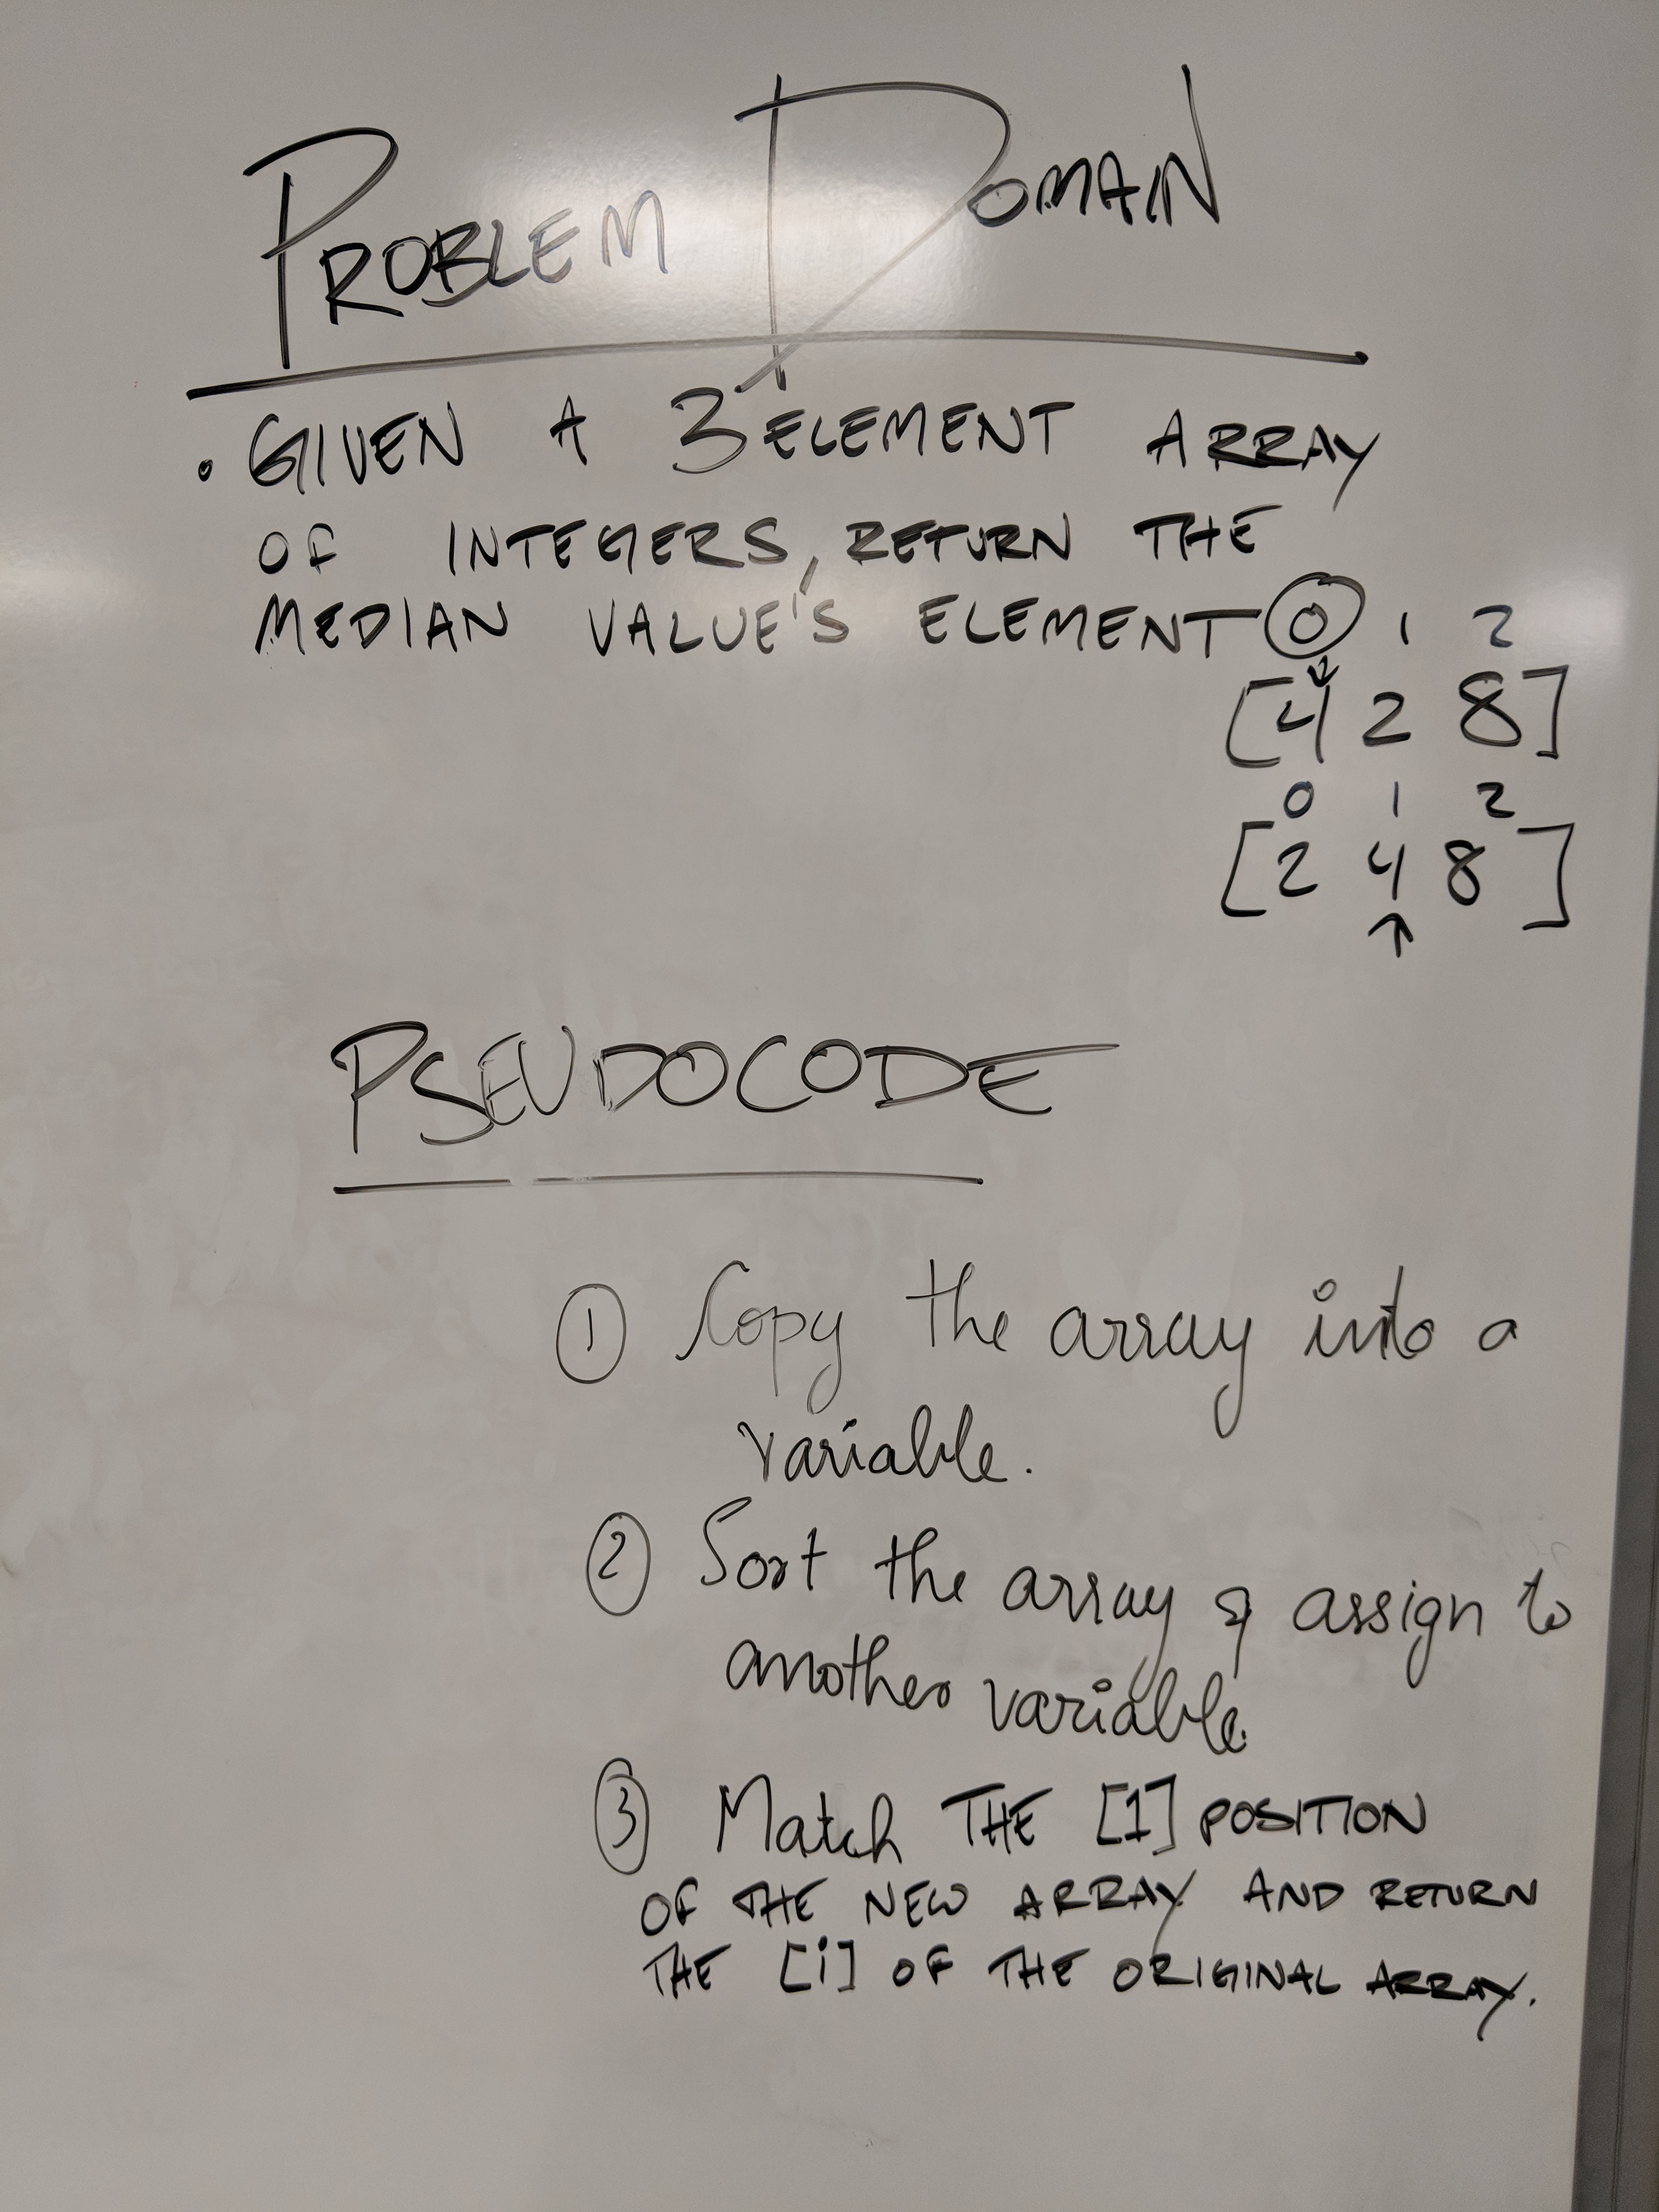 PROBLEM DOMAIN
• GIVEN A 3 ELEMENT ARRAY
OF INTEGERS, RETURN THE
MEDIAN VALUE'S ELEMENT
0 1 2
[4 2 8]
0 1 2
[2 4 8]
↑
PSEUDOCODE
① Copy the array into a
variable.
② Sort the array & assign to
another variable.
③ Match THE [1] POSITION
OF THE NEW ARRAY AND RETURN
THE [i] OF THE ORIGINAL ARRAY.